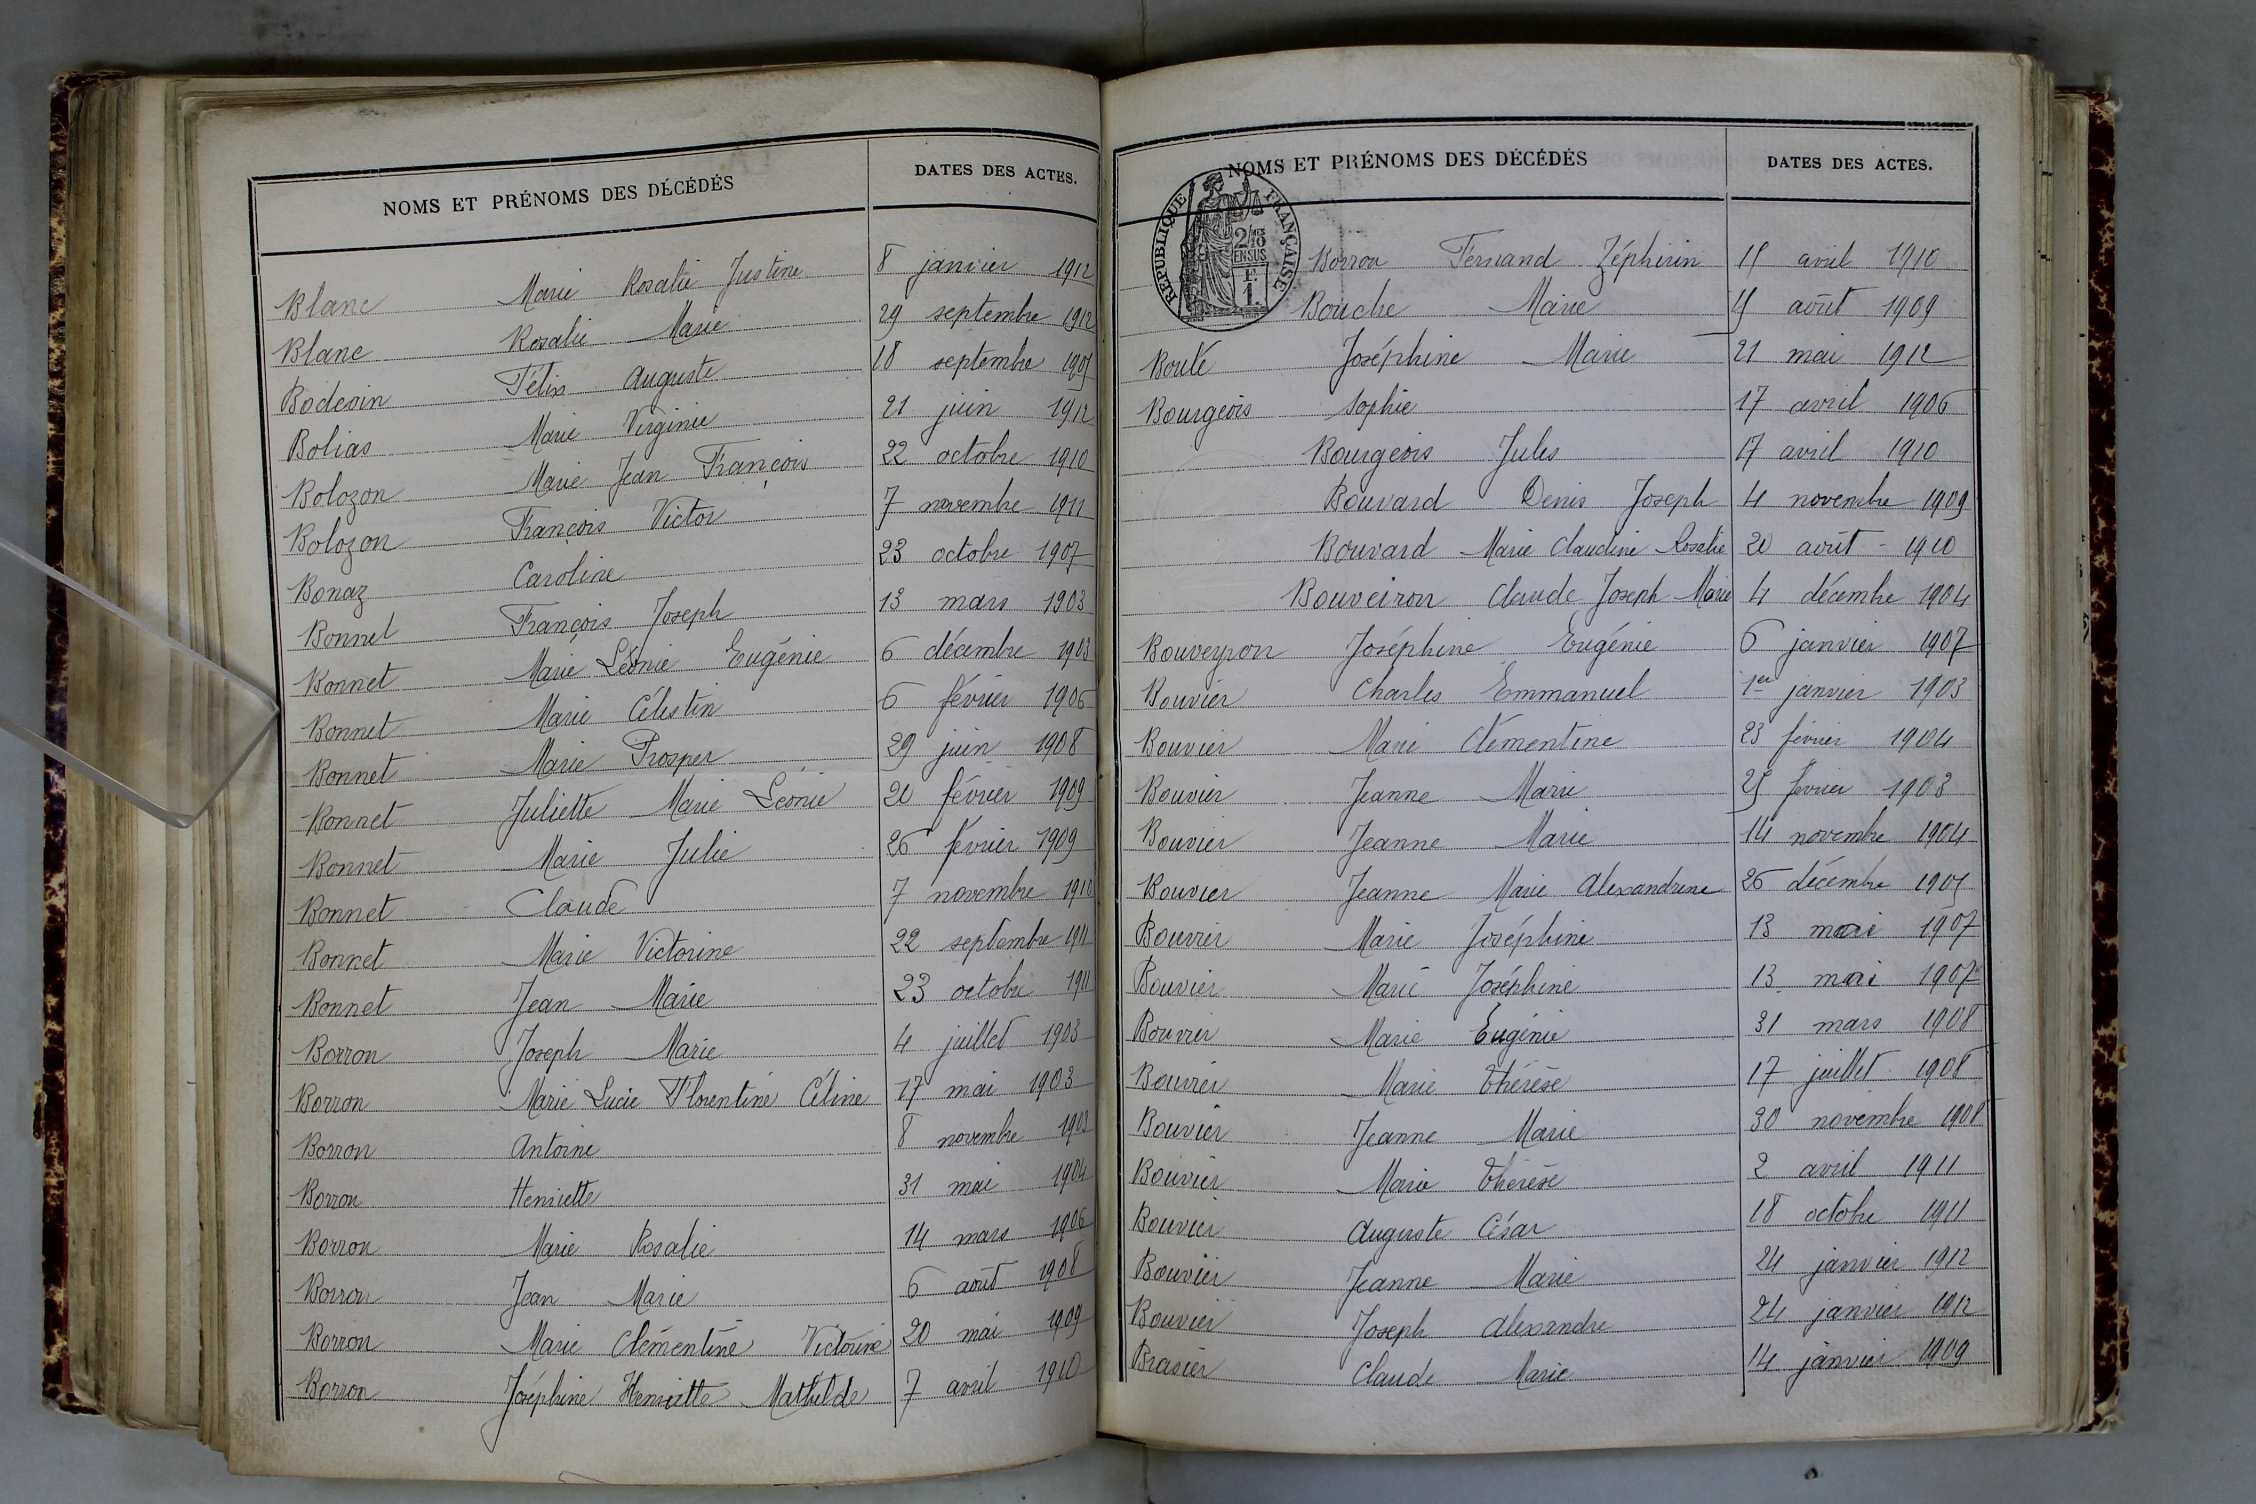 NOMS ET PRÉNOMS DES DÉCÉDÉS DATES DES ACTES.
Blanc Marie Rosalie Justine 8 janvier 1912
Blanc Rosalie Marie 29 septembre 1912
Félix Auguste 18 septembre 1905
Bolias Marie Virginie 21 juin 1912
Bolozon Marie Jean François 22 octobre 1910
Bolozon François Victor 7 novembre 1911
Bonaz Caroline 23 octobre 1907
Bonnet François Joseph 13 mars 1903
Bonnet Marie Léonie Eugénie 6 décembre 1903
Bonnet Marie Célestin 6 février 1906
Bonnet Marie Prosper 29 juin 1908
Bonnet Juliette Marie Léonie 20 février 1909
Bonnet Marie Julie 26 février 1909
Bonnet Claude 7 novembre
Bonnet Marie Victorine 22 septembre 1911
Bonnet Jean Marie 23 octobre 1911
Borron Joseph Marie 4 juillet 1903
Borron Marie Lucie Florentine Céline 17 mai 1903
Borron Antoine 8 novembre 1903
Borron Henriette 31 mai 1904
Borron Marie Rosalie 14 mars 1906
Borron Jean Marie 6 août 1908
Borron Marie Clémentine Victorine 20 mai 1909
Borron Joséphine Henriette Mathilde 7 avril 1910
NOMS ET PRÉNOMS DES DÉCÉDÉS DATES DES ACTES.
RÉPUBLIQUE FRANÇAISE
2/10ES
EN SUS
F.
1.
Borron Fernand Zéphirin 15 avril 1910
Bouche Marie 5 août 1909
Boulé Joséphine Marie 21 mai 1912
Bourgeois Sophie 17 avril 1906
Bourgeois Jules 17 avril 1910
Bouvard Denis Joseph 4 novembre 1909
Bouvard Marie Claudine Rosalie 20 août 1910
Bouveiron Claude Joseph Marie 4 décembre 1904
Bouveyron Joséphine Eugénie 6 janvier 1907
Bouvier Charles Emmanuel 1er janvier 1903
Bouvier Marie Clémentine 23 février 1904
Bouvier Jeanne Marie 25 février 1903
Bouvier Jeanne Marie 14 novembre 1904
Bouvier Jeanne Marie Alexandrine 26 décembre 1905
Bouvier Marie Joséphine 13 mai 1907
Bouvier Marie Joséphine 13 mai 1907
Bouvier Marie Eugénie 31 mars 1908
Bouvier Marie Thérèse 17 juillet 1908
Bouvier Jeanne Marie 30 novembre 1908
Bouvier Marie Thérèse 2 avril 1911
Bouvier Auguste César 18 octobre 1911
Bouvier Jeanne Marie 24 janvier 1912
Bouvier Joseph Alexandre 24 janvier 1912
Brasier Claude Marie 14 janvier 1909